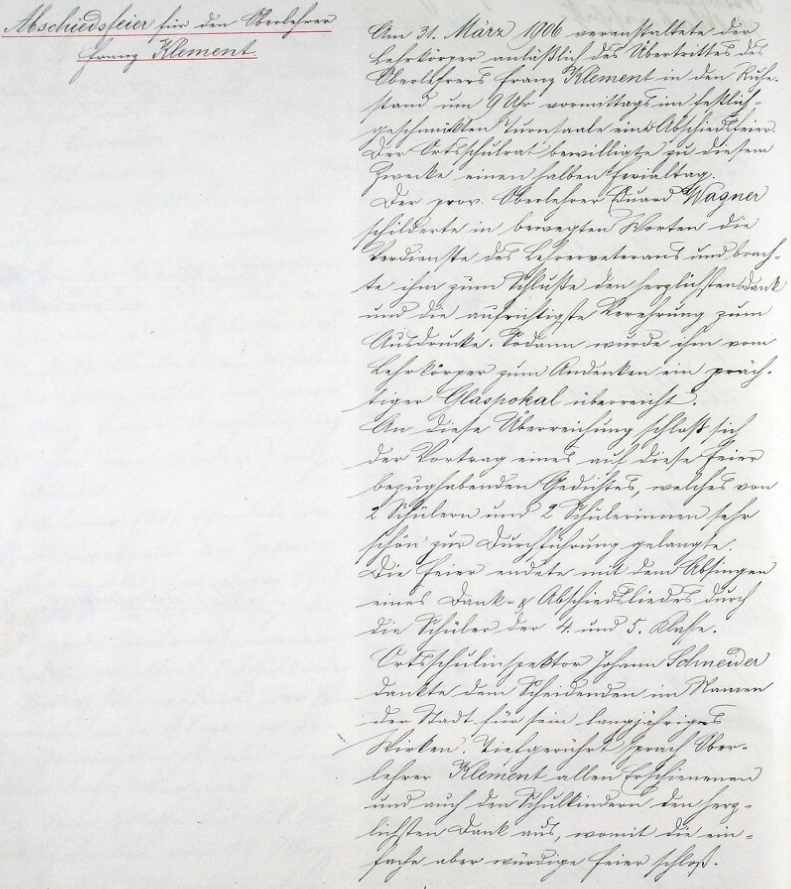 Abschiedsfeier für den Oberlehrer
Franz Klement.
Am 31. März 1906 veranstaltete der
Lehrkörper anläßlich des Übertrittes des
Oberlehrers Franz Klement in den Ruhe-
stand um 9 Uhr vormittags im festlich-
geschmückten Turnsaale eine Abschiedsfeier.
Der Ortsschulrat bewilligte zu diesem
Zwecke einen halben Ferialtag.
Der prov. Oberlehrer Eduard Wagner
schilderte in bewegten Worten die
Verdienste des Lehrerveterans und brach-
te ihm zum Schluße den herzlichsten Dank
und die aufrichtigste Verehrung zum
Ausdrucke. Sodann wurde ihm vom
Lehrkörper zum Andenken ein präch-
tiger Glaspokal überreicht.
An diese Überreichung schloß sich
der Vortrag eines auf diese Feier
bezughabenden Gedichtes, welches von
2 Schülern und 2 Schülerinnen sehr
schön zur Durchführung gelangte.
Die Feier endete mit dem Absingen
eines Dank- & Abschiedsliedes durch
die Schüler der 4. und 5. Klasse.
Ortsschulinspektor Johann Schneider
dankte dem Scheidenden im Namen
der Stadt für sein langjähriges
Wirken. Tiefgerührt sprach Ober-
lehrer Klement allen Erschienenen
und auch den Schulkindern den herz-
lichsten Dank aus, womit die ein-
fache aber würdige Feier schloß.